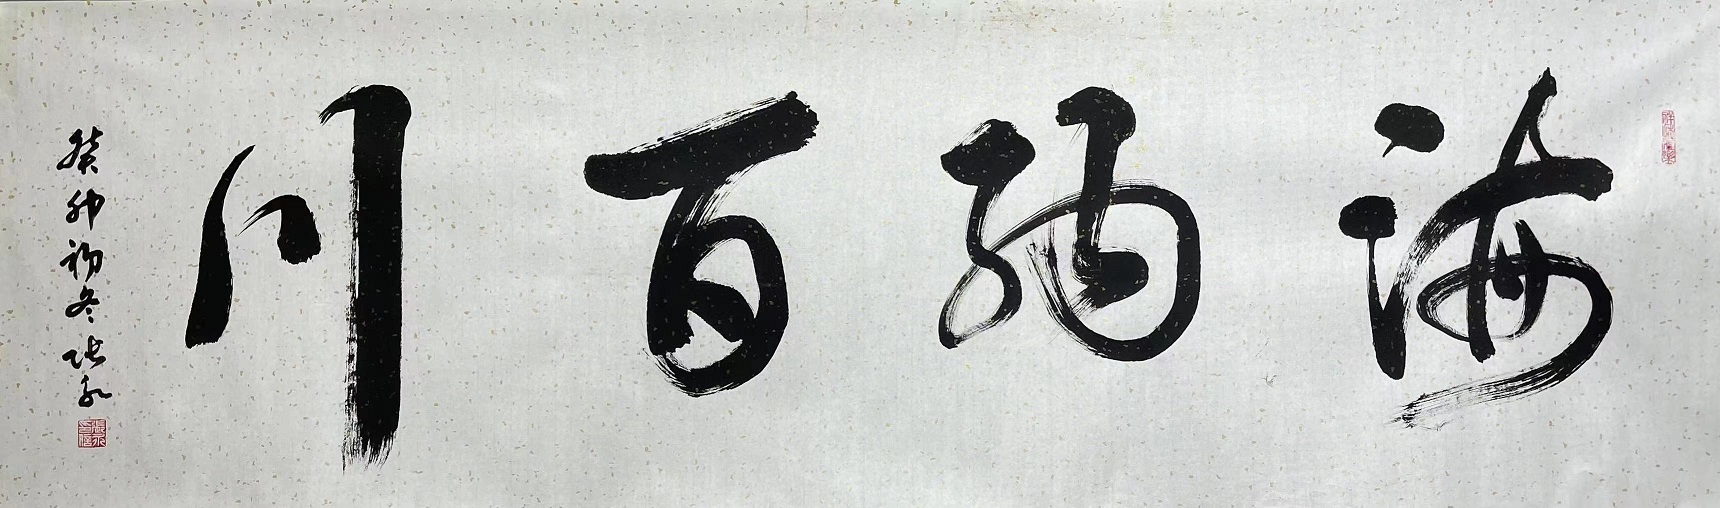 海纳百川
癸卯初冬张永